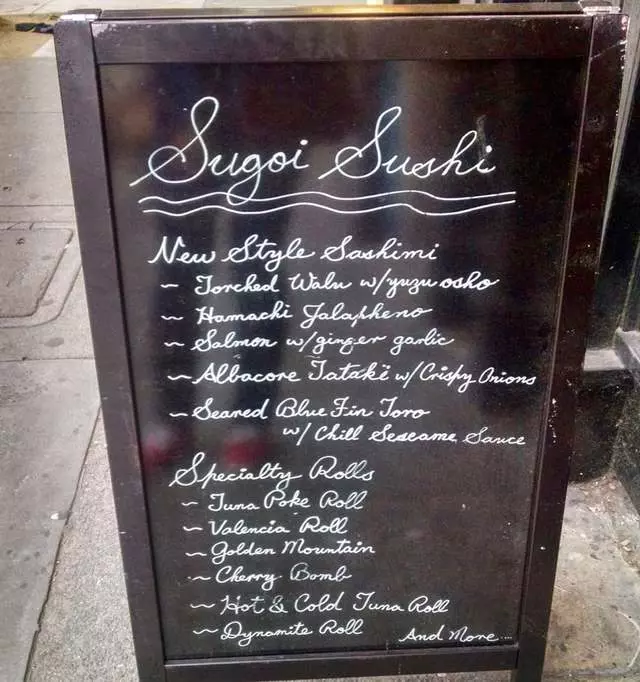 Sugoi Sushi
New Style Sashimi
~ Torched Walu w/yuzu osho
~ Hamachi Jalapheno
~ Salmon w/ginger garlic
~ Albacore Tataki w/Crispy Onions
~ Seared Blue Fin Toro
w/ Chili Sescame Sauce
Specialty Rolls
~ Tuna Poke Roll
~ Valencia Roll
~ Golden Mountain
~ Cherry Bomb
~ Hot & Cold Tuna Roll
~ Dynamite Roll And More....